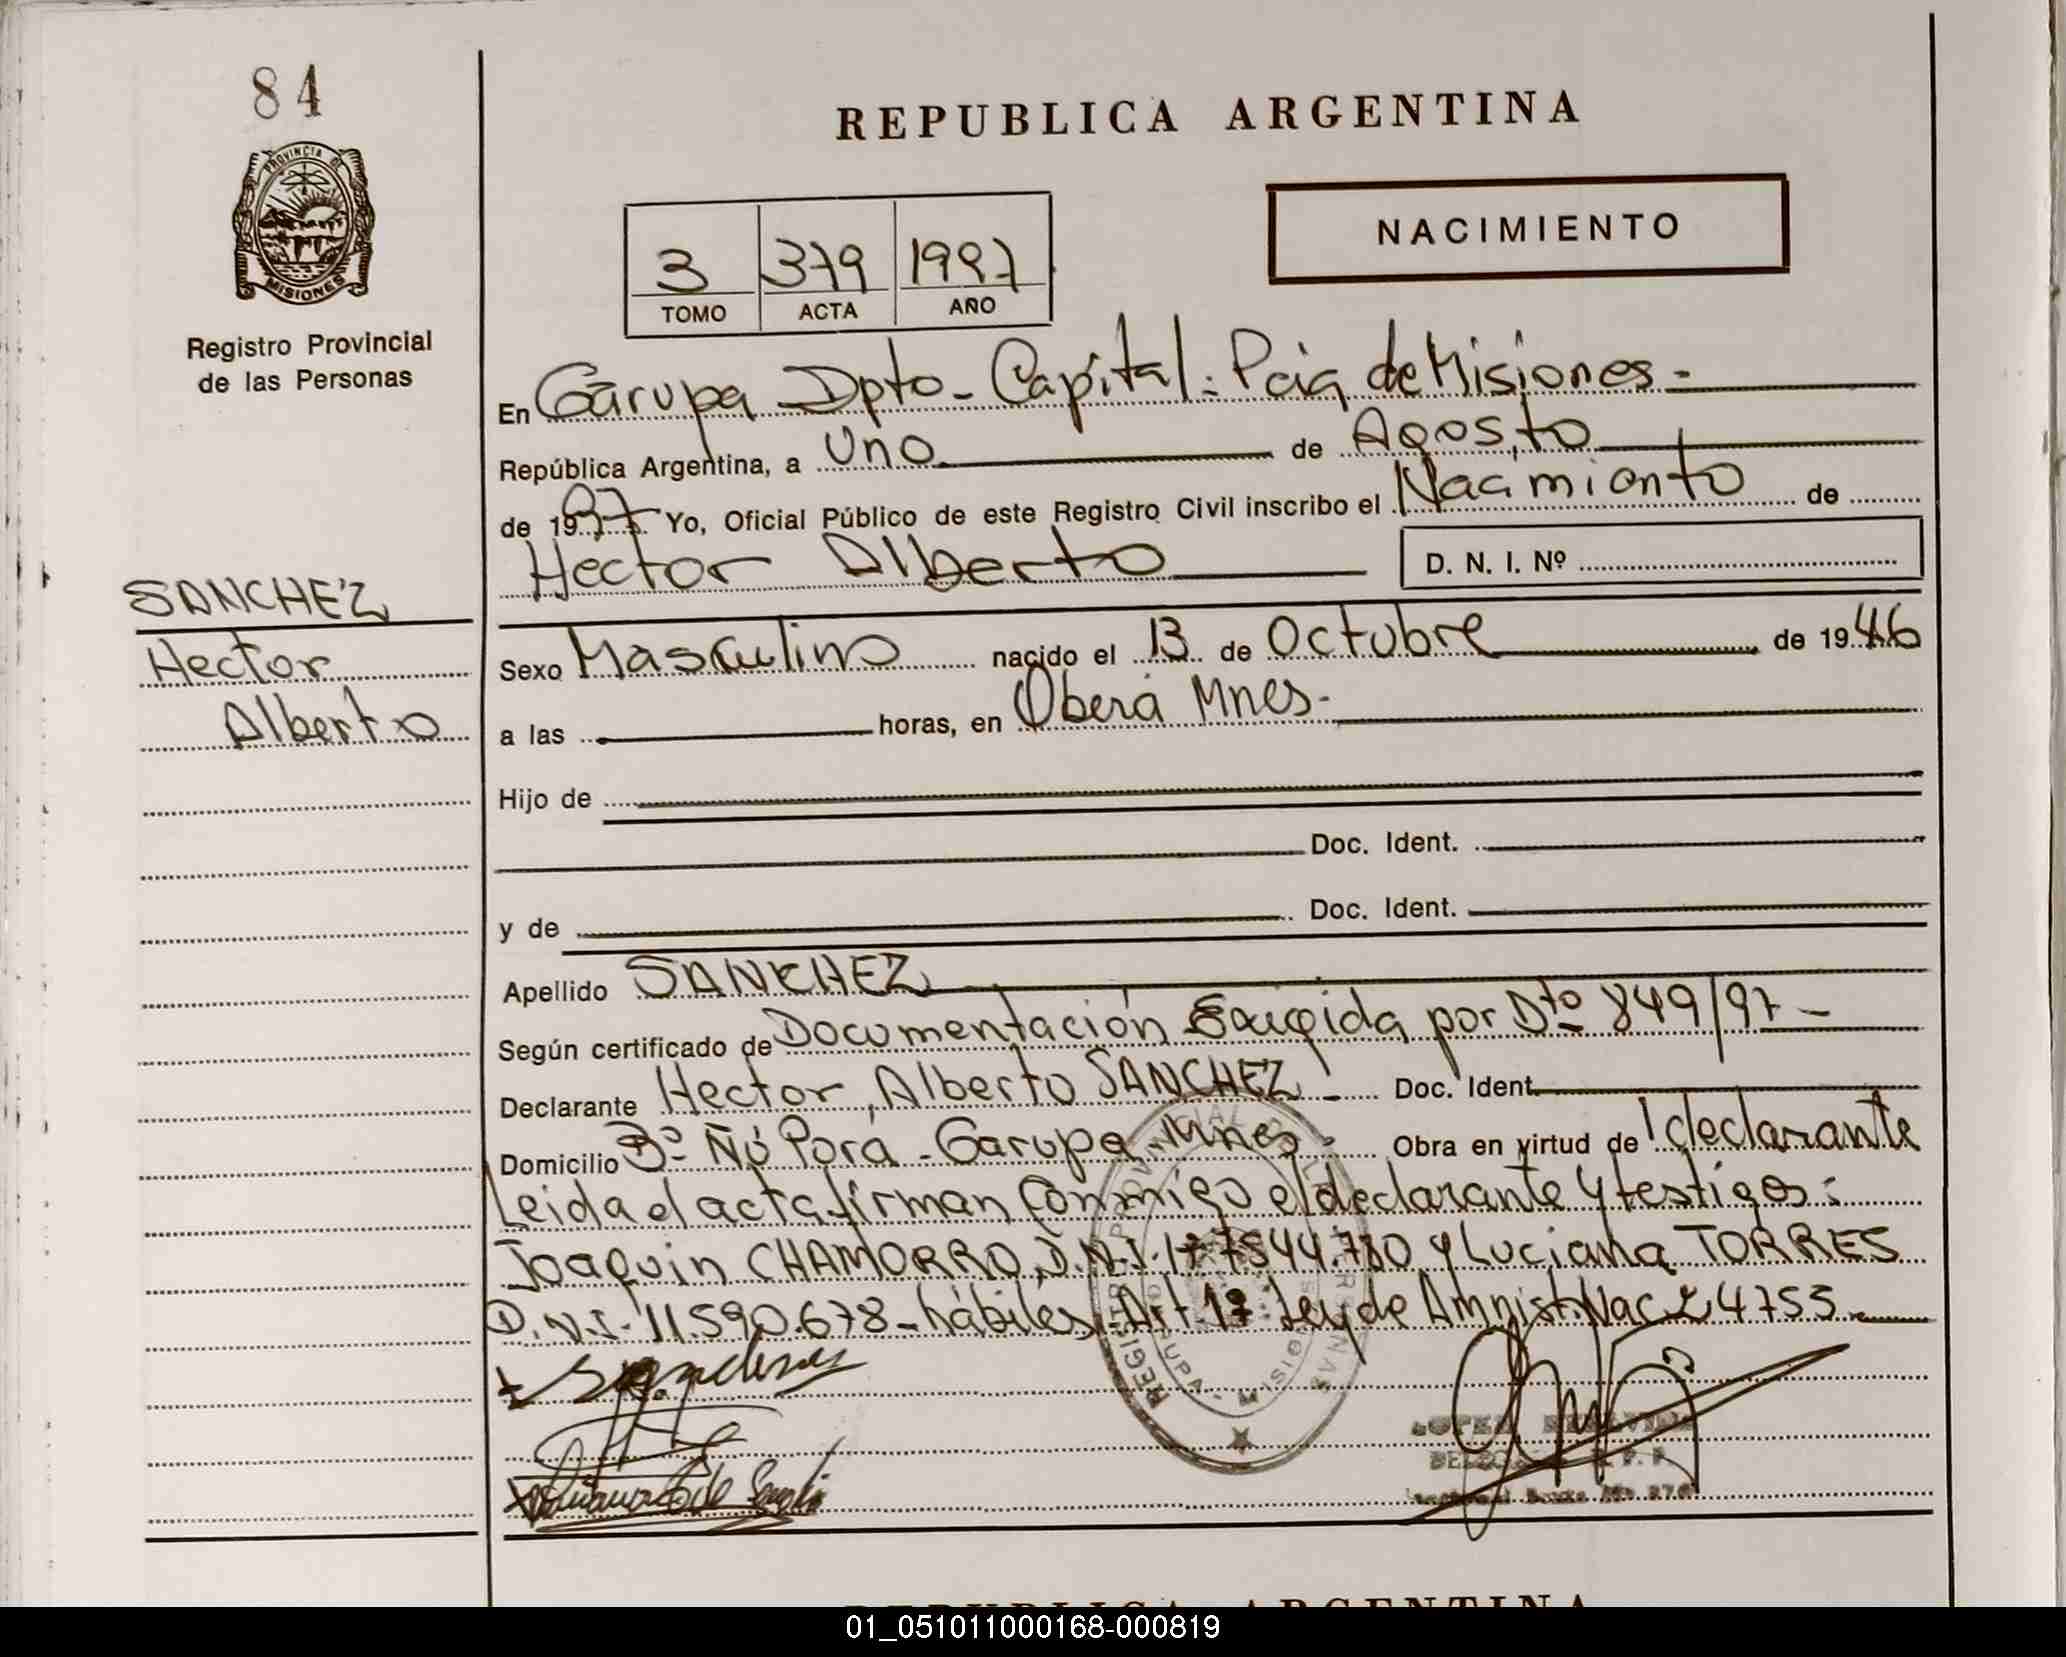 84
PROVINCIA DE
MISIONES
Registro Provincial
de las Personas
SANCHEZ
Hector
Alberto
REPUBLICA ARGENTINA
NACIMIENTO
3 379 1997
TOMO ACTA AÑO
En Garupa Dpto - Capital - Pcia de Misiones -
República Argentina, a uno de Agosto
de 1997 Yo, Oficial Público de este Registro Civil inscribo el Nacimiento de
Hector Alberto D. N. I. Nº
Sexo Masculino nacido el 13 de Octubre de 1946
a las horas, en Oberá Mnes-
Hijo de
Doc. Ident.
y de Doc. Ident.
Apellido SANCHEZ
Según certificado de Documentación Exigida por Dto 849/97 -
Declarante Hector Alberto SANCHEZ - Doc. Ident.
Domicilio Bº Ñú Porá - Garupa - Mnes - Obra en virtud de l declarante
Leida el acta firman conmigo el declarante y testigos:
Joaquin CHAMORRO, D.N.I. 7544.780 y Luciana TORRES
D.N.I. 11.590.678 - hábiles - Art. Ley de Amnist. Nac 24755
REPUBLICA ARGENTINA
01_051011000168-000819